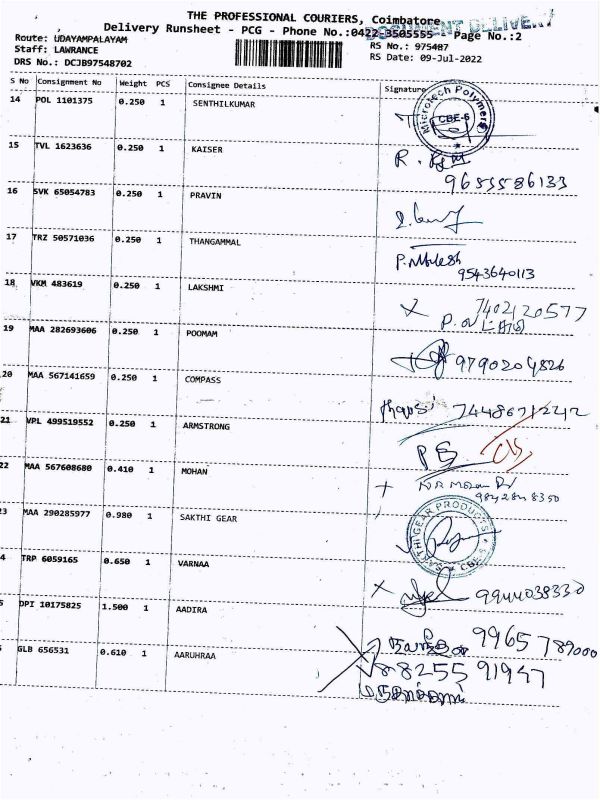 THE PROFESSIONAL COURIERS, Coimbatore
DOCUMENT DELIVERY
Delivery Runsheet - PCG - Phone No.:0422-3505555 Page No.:2
Route: UDAYAMPALAYAM
RS No.: 975487
Staff: LAWRANCE
RS Date: 09-Jul-2022
DRS No.: DCJB97548702
S No Consignment No Weight PCS Consignee Details Signature
14 POL 1101375 0.250 1 SENTHILKUMAR
Microtech Polymers
CBE-6
15 TVL 1623636 0.250 1 KAISER
9655586133
16 SVK 65054783 0.250 1 PRAVIN
17 TRZ 50571036 0.250 1 THANGAMMAL
9543640113
18 VKM 483619 0.250 1 LAKSHMI
7402120577
19 MAA 282693606 0.250 1 POOMAM
9790204826
20 MAA 567141659 0.250 1 COMPASS
21 VPL 499519552 0.250 1 ARMSTRONG
22 MAA 567608680 0.410 1 MOHAN
23 MAA 290285977 0.980 1 SAKTHI GEAR
SAKTHI GEAR PRODUCTS
4 TRP 6059165 0.650 1 VARNAA
9944038330
5 DPI 10175825 1.500 1 AADIRA
9965 789000
GLB 656531 0.610 1 AARUHRAA
88255 91947